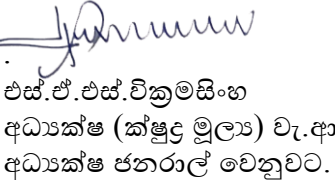 එස්.ඒ.එස්.වික්‍රමසිංහ
අධ්‍යක්ෂ (ක්ෂුද්‍ර මූල්‍ය) වැ.ආ
අධ්‍යක්ෂ ජනරාල් වෙනුවට.